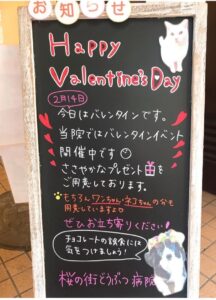 お知らせ
Happy
Valentine's Day
2月14日
今日はバレンタインです。
当院ではバレンタインイベント
開催中です
ささやかなプレゼントを
ご用意しております。
もちろんワンちゃん・ネコちゃんの分も
用意していますよ
ぜひお立ち寄りください!
チョコレートの誤食には
気をつけましょう!
桜の街どうぶつ病院